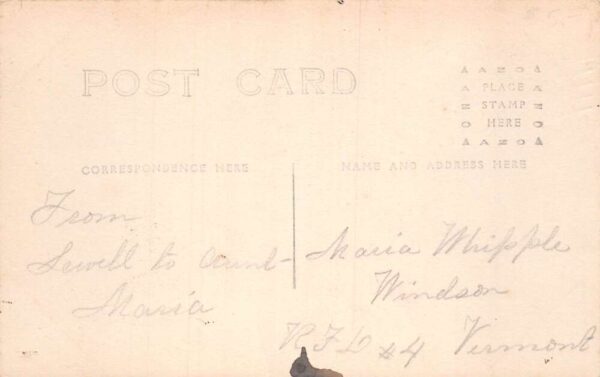 POST CARD
AZO
PLACE
STAMP
HERE
AZO
CORRESPONDENCE HERE
NAME AND ADDRESS HERE
From
Sewell to Aunt
Maria
Maria Whipple
Windsor
RFD #4 Vermont